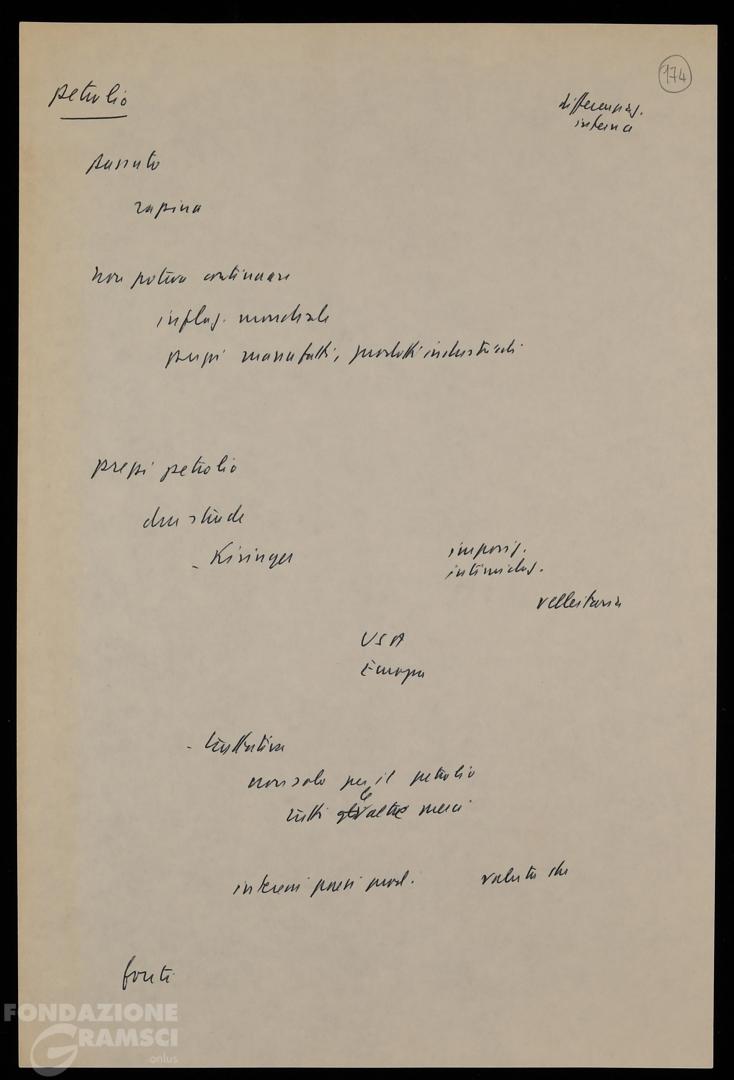 174
petrolio
differenziaz.
interna
passato
rapina
non poteva continuare
inflaz. mondiale
prezzi manufatti, prodotti industriali
prezzi petrolio
due strade
- Kisinger
imposiz.
intimidaz.
velleitaria
USA
Europa
- trattativa
non solo per il petrolio
tutti le altre merci
interessi paesi prod.
valuta che
fonti
FONDAZIONE
GRAMSCI
onlus